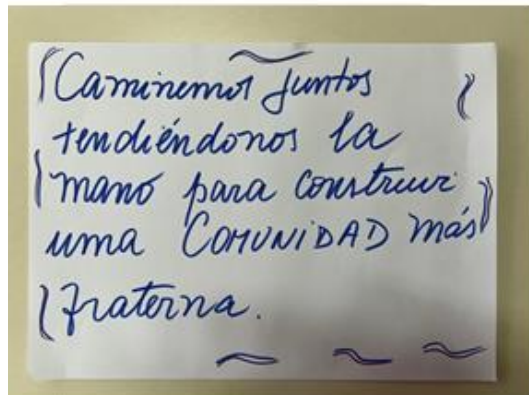 Caminemos juntos
tendiéndonos la
mano para construir
uma COMUNIDAD más
fraterna.